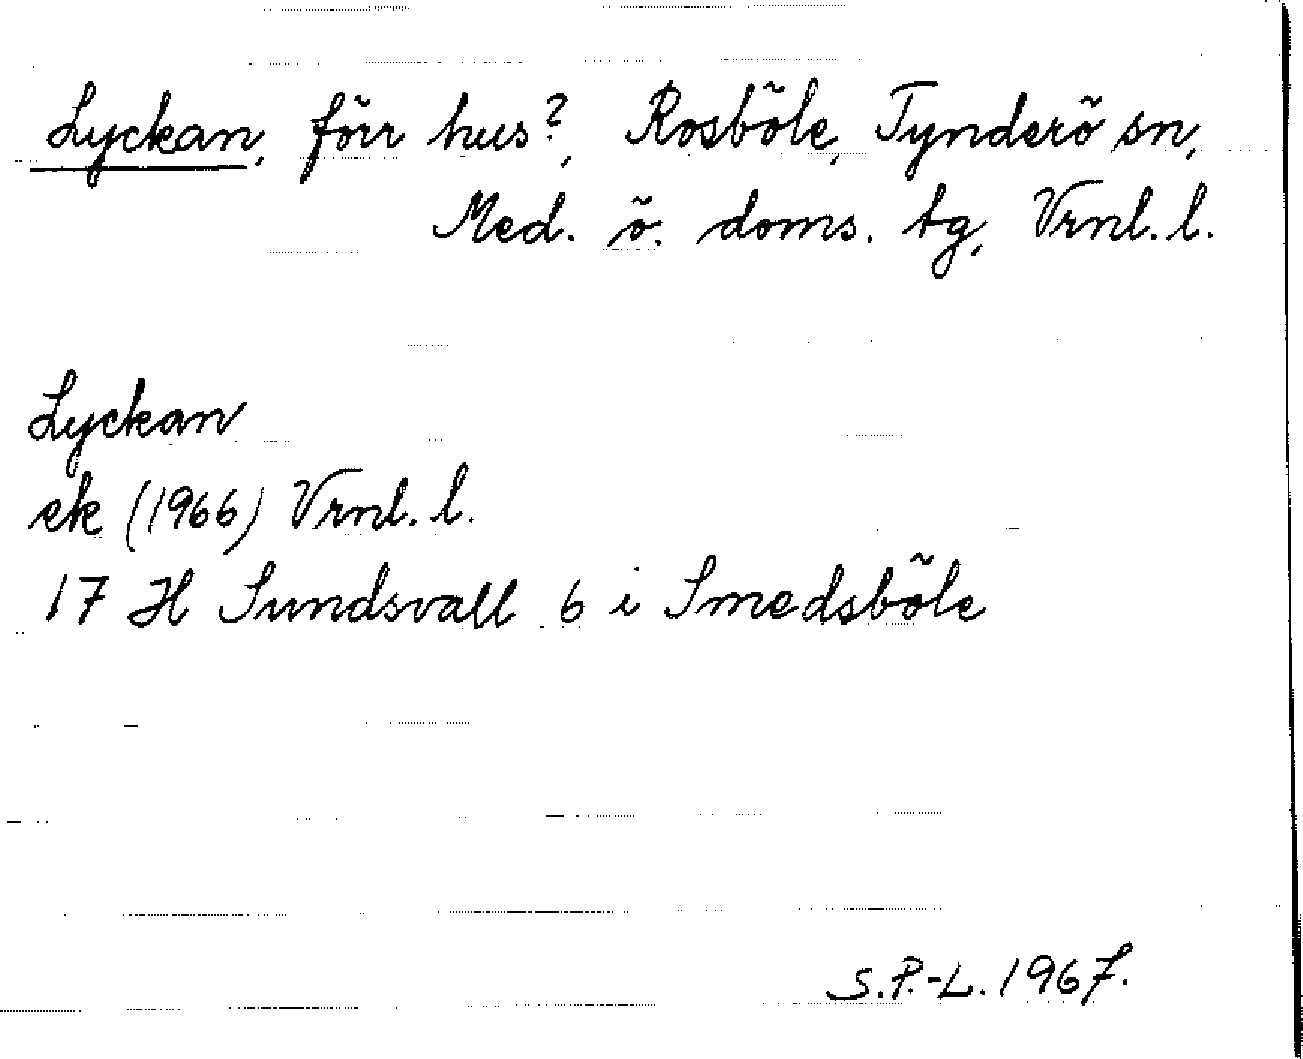 Lyckan, förr hus?, Rosböle, Tynderö sn,
Med. ö. doms. tg, Vrnl. l.
Lyckan
ek (1966) Vrnl. l.
17 H Sundsvall 6 i Smedsböle
S.P.-L. 1967.